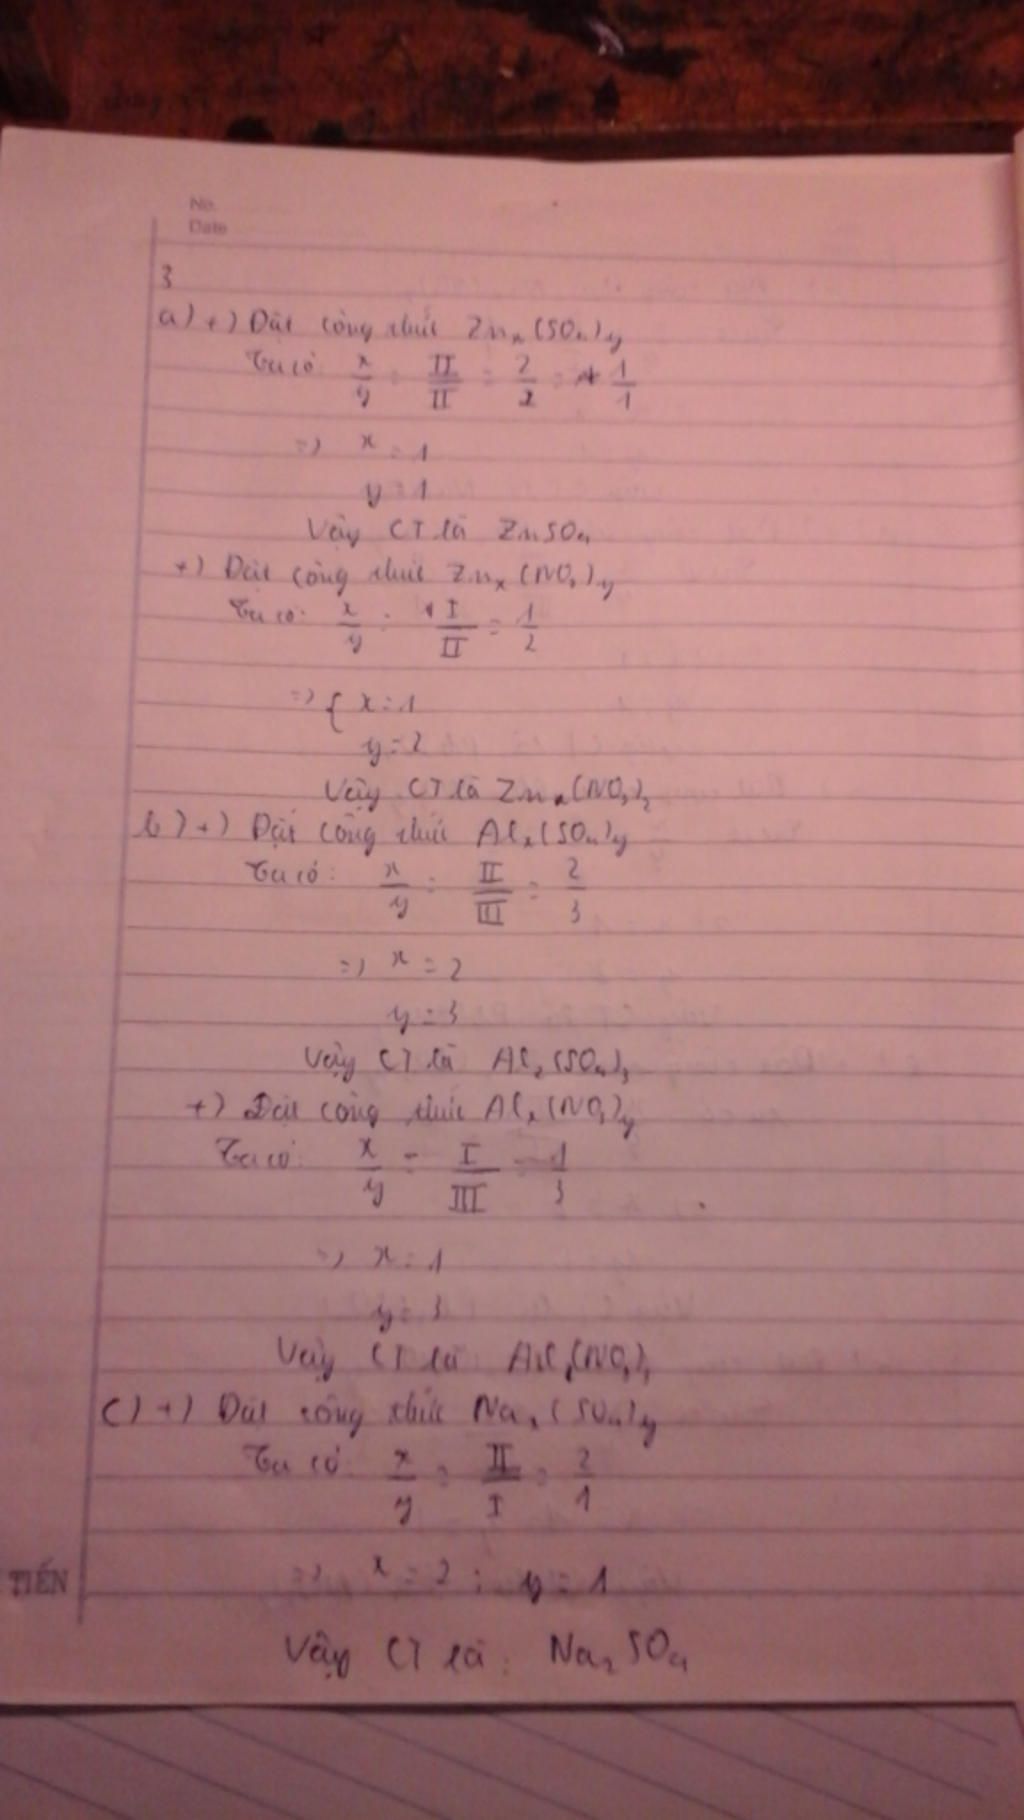 No.
Date
3
a) +) Đặt công thức Znx(SO4)y
Ta có: x/y = II/II = 2/2 = 1/1
=> x = 1
y = 1
Vậy CT là ZnSO4
+) Đặt công thức Znx(NO3)y
Ta có: x/y = I/II = 1/2
=> { x = 1
y = 2
Vậy CT là Zn(NO3)2
b) +) Đặt công thức Alx(SO4)y
Ta có: x/y = II/III = 2/3
=> x = 2
y = 3
Vậy CT là Al2(SO4)3
+) Đặt công thức Alx(NO3)y
Ta có: x/y = I/III = 1/3
=> x = 1
y = 3
Vậy CT là Al(NO3)3
c) +) Đặt công thức Nax(SO4)y
Ta có: x/y = II/I = 2/1
=> x = 2 ; y = 1
TIẾN
Vậy CT là: Na2SO4